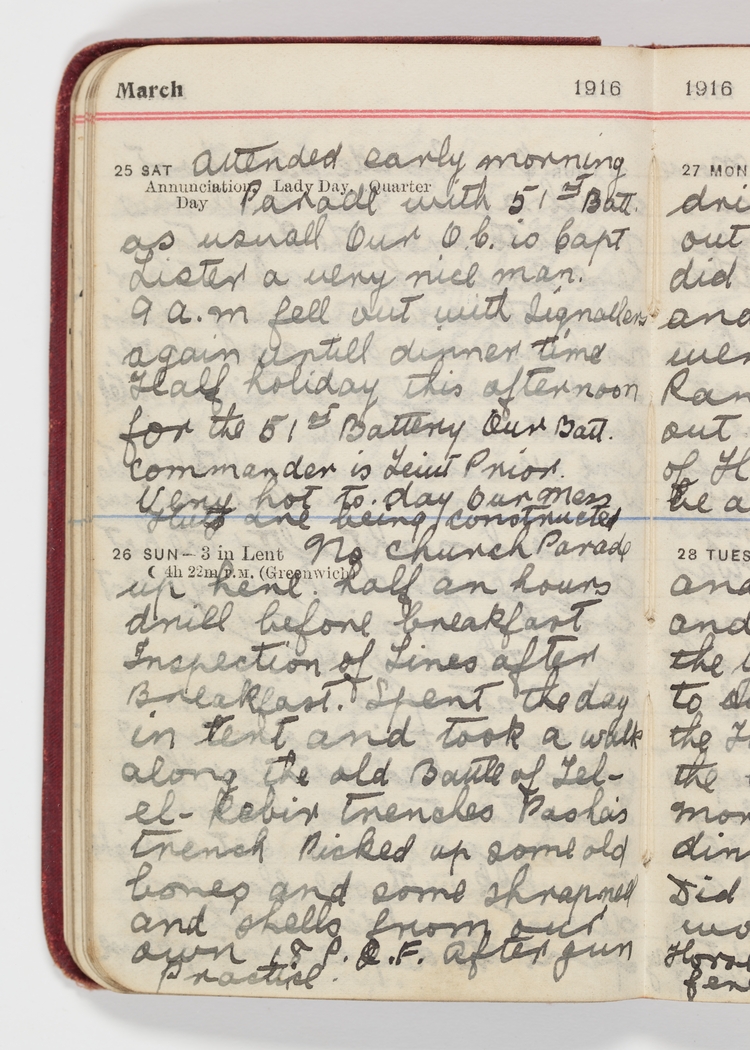 March 1916
25 SAT Attended early morning
Annunciation Lady Day, Quarter
Day Parade with 51st Batt.
as usuall Our O.C. is Capt
Lister a very nice man.
9 a.m fell out with Signallers
again untill dinner time
Half holiday this afternoon
for the 51st Battery Our Batt.
Commander is Leiut Prior.
Very hot to.day Our Mess
Huts are being constructed
26 SUN–3 in Lent No church Parade
☾ 4h 22m P.M. (Greenwich)
up here. half an hours
drill before breakfast
Inspection of Lines after
Breakfast. Spent the day
in tent and took a walk
along the old Battle of Tel-
el-Kebir trenches Pasha's
trench Picked up some old
bones and some shrapnel
and shells from our
own 18 P. Q.F. after gun
Practice.
1916
27 MON
dri
out
did
and
wer
Ran
out
of H
be a
28 TUES
and
and
the
to
the
the
mor
din
Did
wo
Hors
fen